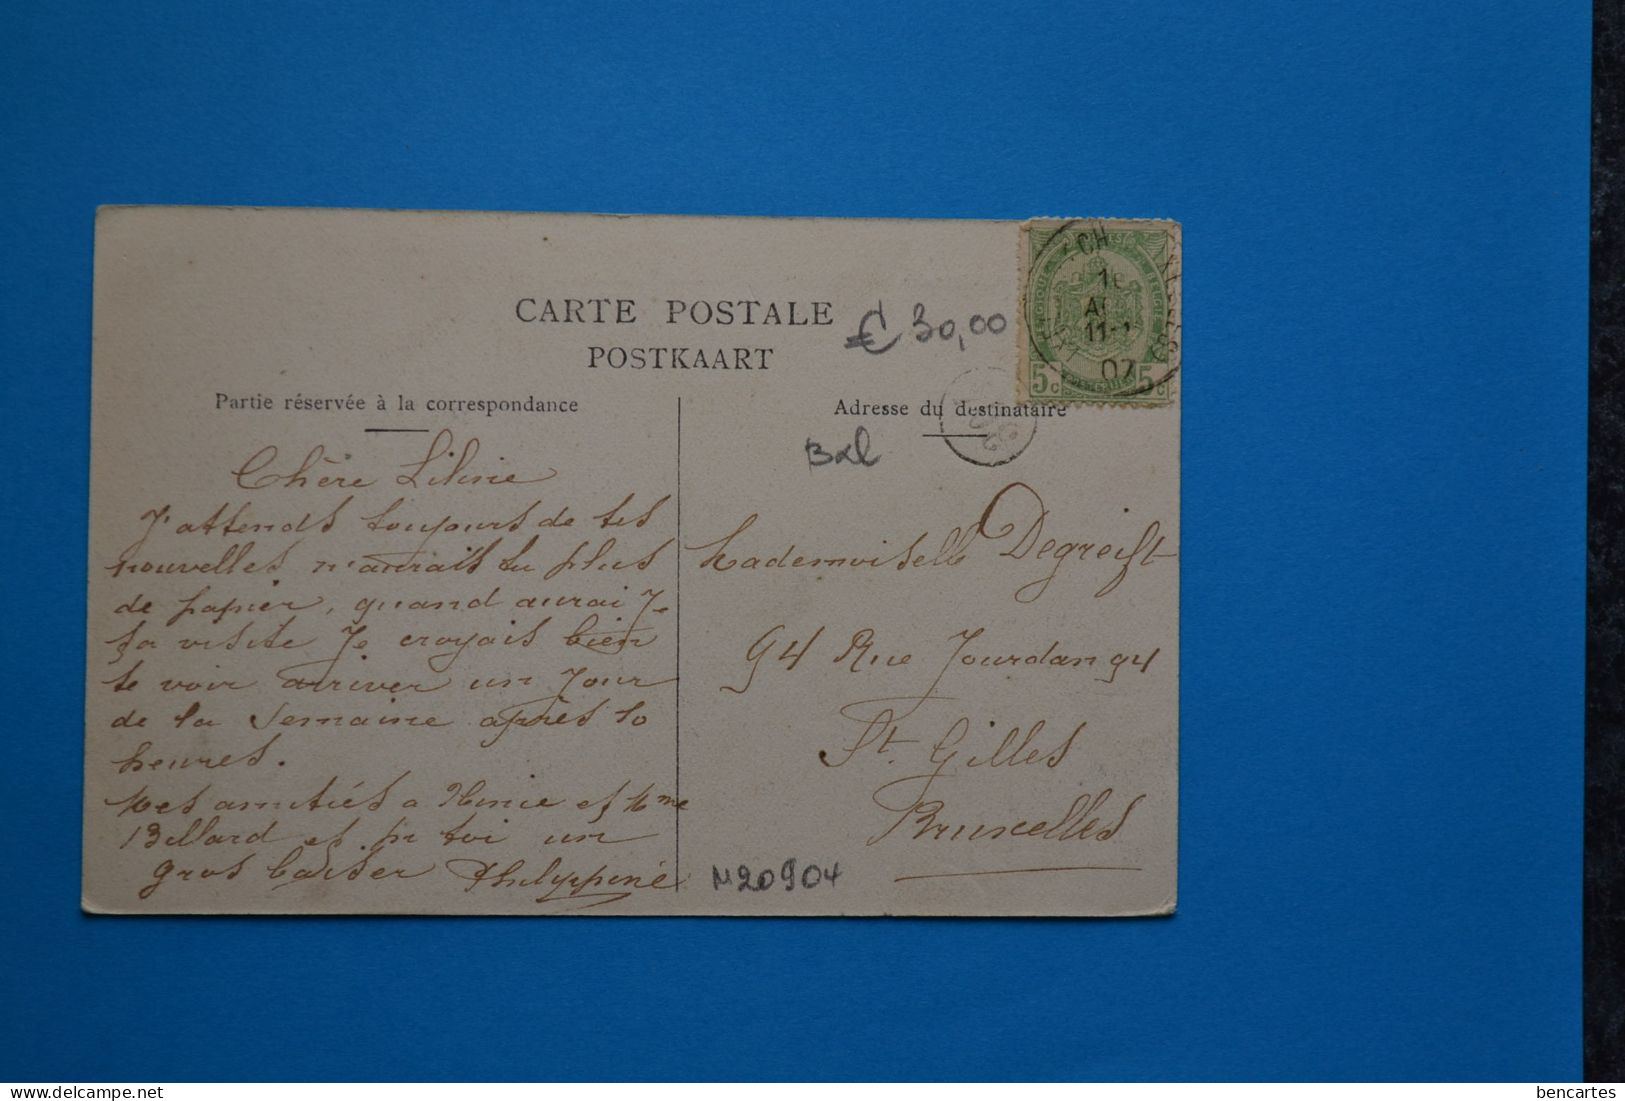 CARTE POSTALE
POSTKAART
€ 30,00
Partie réservée à la correspondance
Adresse du destinataire
Bxl
Chère Liline
J'attends toujours de tes
nouvelles n'aurais tu plus
de papier, quand aurai Je
ta visite Je croyais bien
te voir arriver un Jour
de la Semaine après 10
heures.
Mes amitiés a Ninie et Mme
Billard et pr toi un
gros baiser Philyppine
Mademoiselle Degreift
94 Rue Jourdan 94
St. Gilles
Bruxelles
M20904
5c 5c
07
bencartes